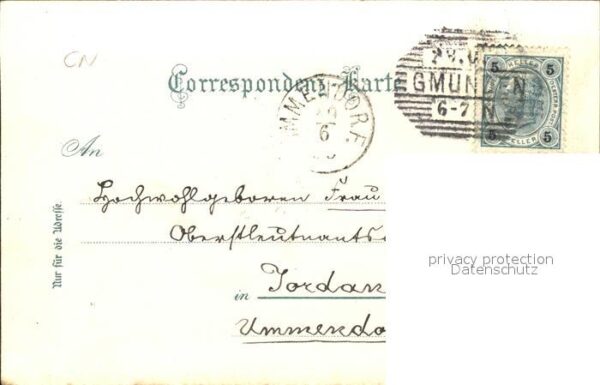 CN
Correspondenz-Karte
GMUNDEN
6-7
N
5 HELLER 5
5 HELLER 5
UMMENDORF.
6
An
Hochwohlgeboren Frau
Oberstleutnants
Jordan
in
Ummendo
Nur für die Adresse.
privacy protection
Datenschutz